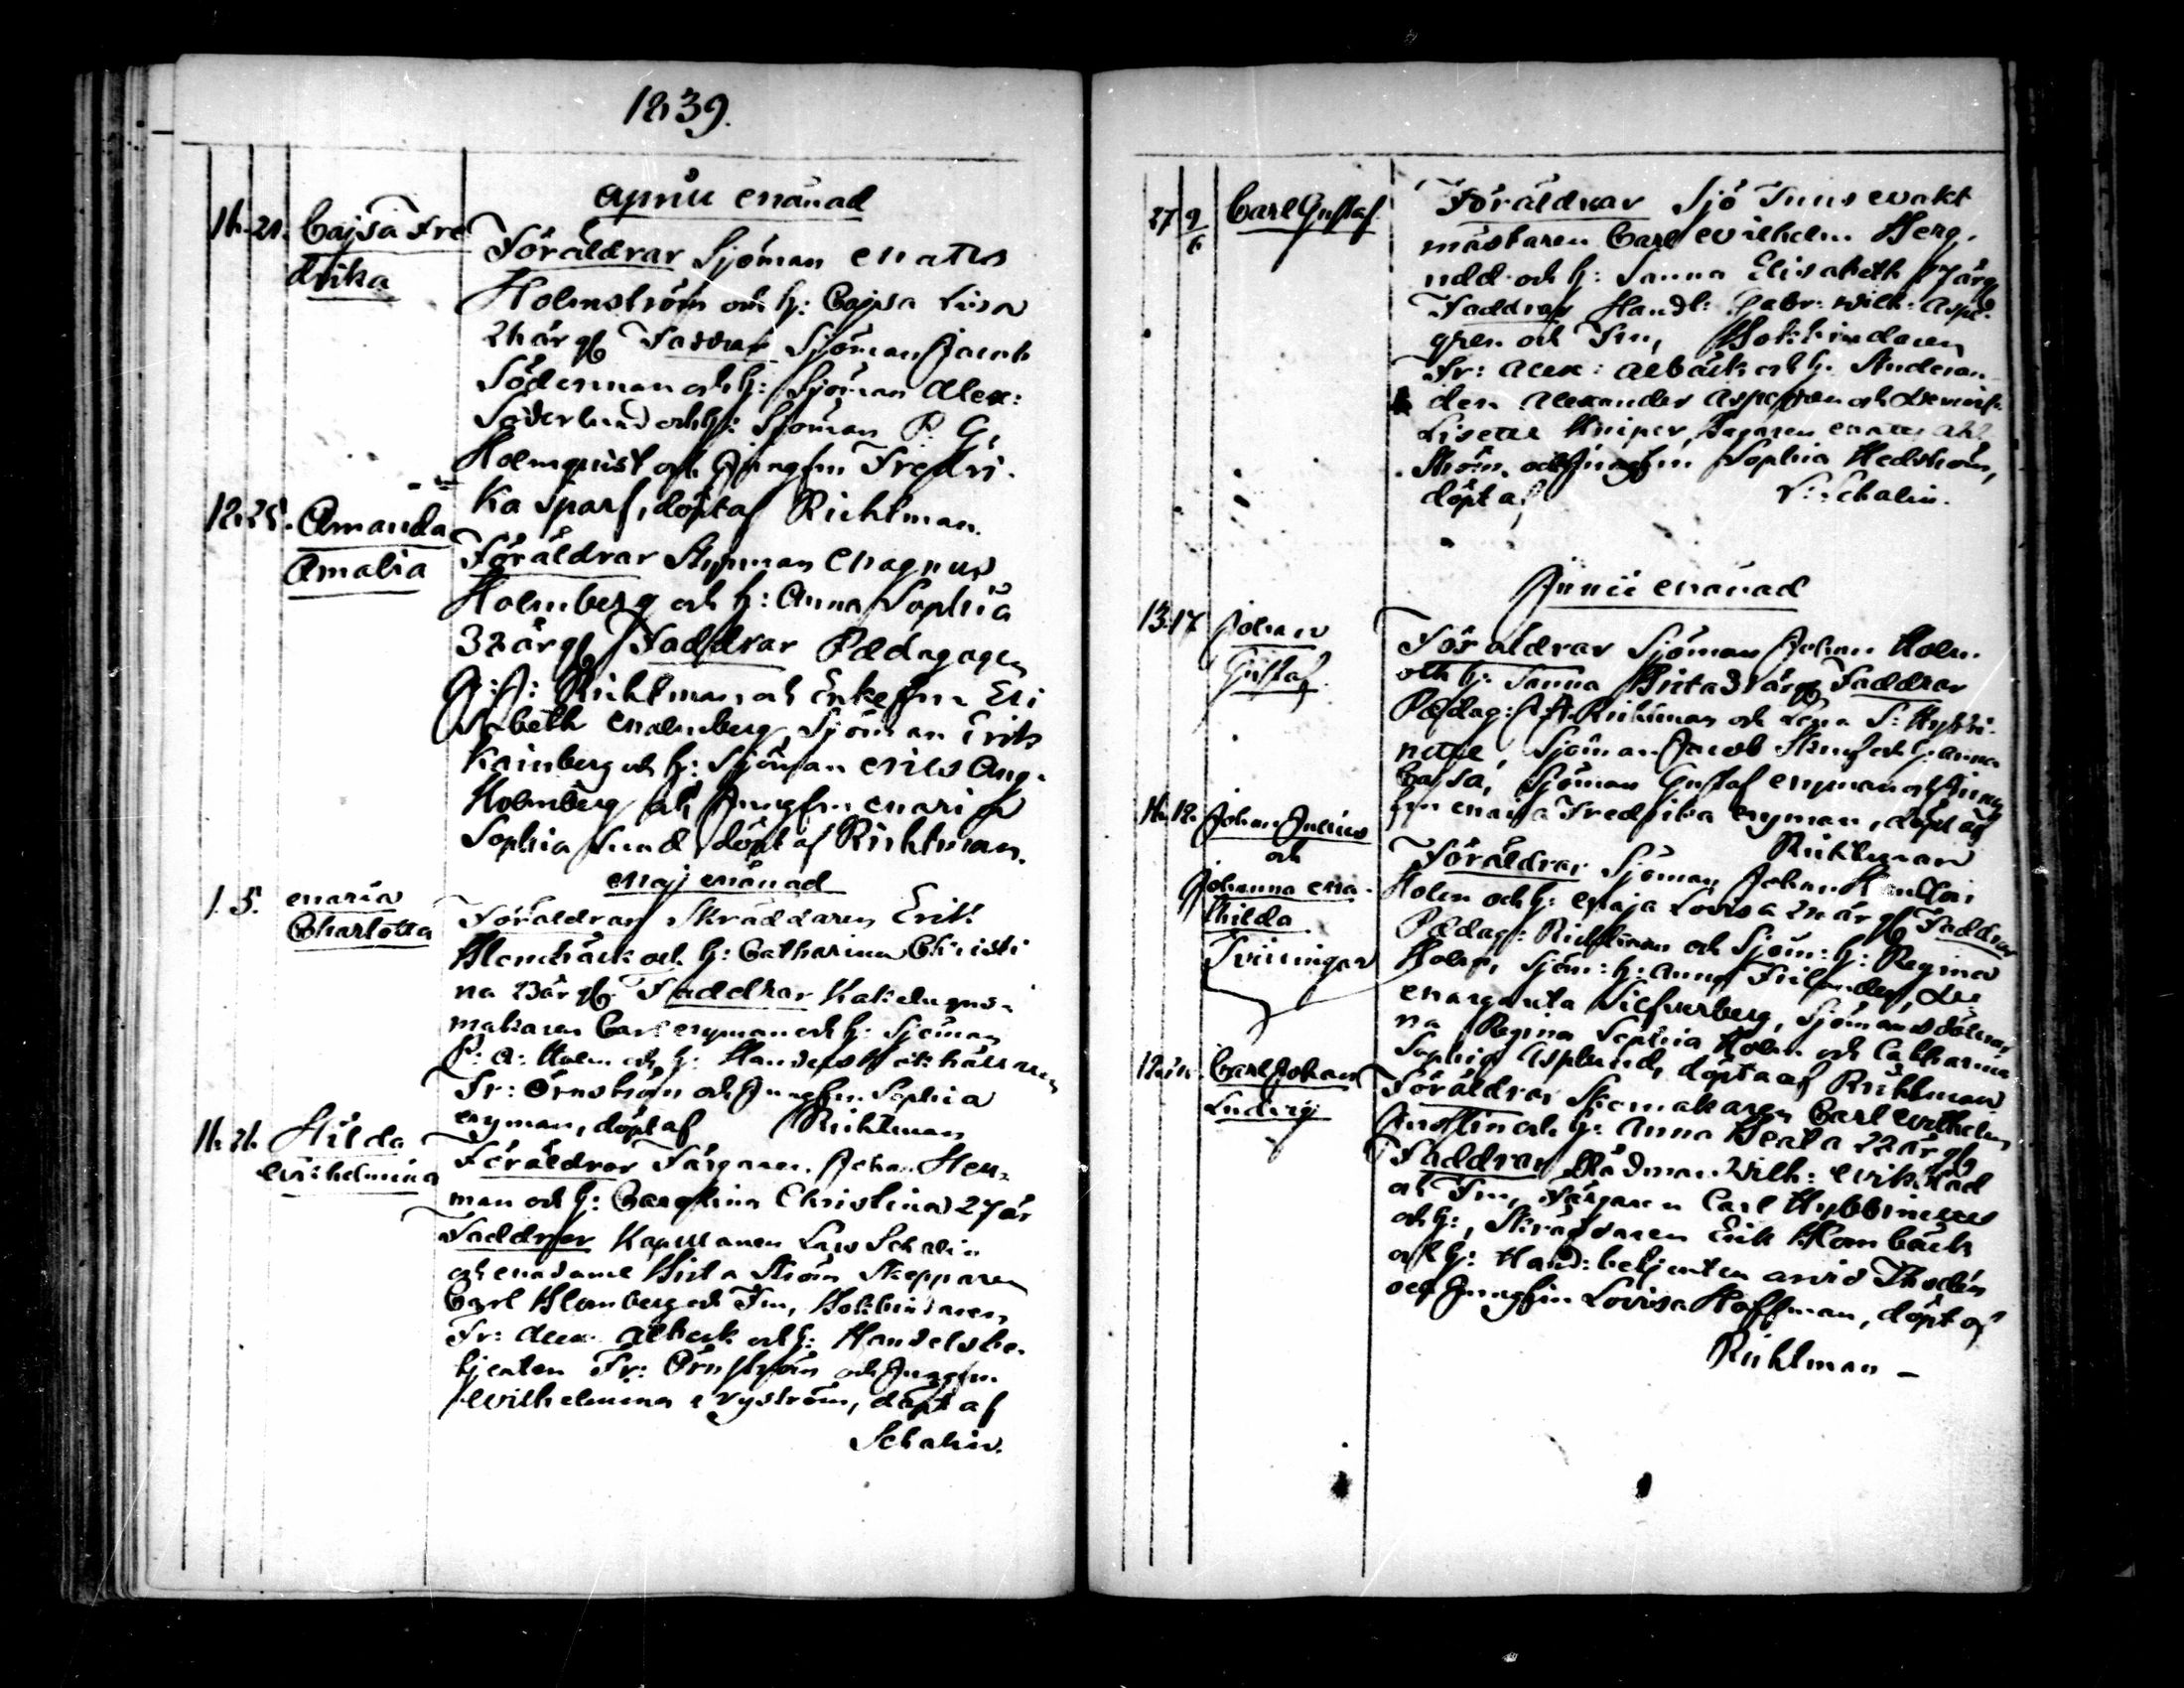 1839.
April Månad
16. 21. Cajsa Fre
drika
Föräldrar Sjöman Matts
Holmström och h: Cajsa Lisa
26 år gl Faddrar Sjöman Jacob
Söderman och h: Sjöman Alex:
Söderlund och h: Sjöman P. G.
Holmquist och Jungfru Fredri-
ka Sparf, döpt af Richtman.
18. 25. Amanda
Amalia
Föräldrar Styrman Magnus
Holmberg och h: Anna Sophia
32 år gl Faddrar Pædagogen
Richtman och Enkefru Eli
sabeth Malmberg, Sjöman Erik
Kainberg och h: Sjöman Nils Aug.
Holmberg och Jungfru Maria
Sophia Lund döpt af Richtman.
Maj Månad
1. 5. Maria
Charlotta
Föräldrar Skräddaren Erik
Klombäck och h: Catharina Christi
na 23 år gl. Faddrar Kakelugns-
makaren Carl Nyman och h: Sjöman
P: A: Holm och h: Handels
Fr: Örnström och Jungfru Sophia
Nyman, döpt af Richtman
16. 26. Hilda
Wilhelmina
Föräldrar Färgaren Johan Hen-
man och h: Carolina Christina 27 år
Faddrar Kapellanen Lars Schalin
och Madame Brita Ström Skepparen
Carl Blomberg och Fru, Bokbindaren
Fr: Alex: Albäck och h: Handelsbe-
tjenten Fr: Örnström och Jungfru
Wilhelmina Nyström, döpt af
Schalin.
27 9/6 Carl Gustaf
Föräldrar Sjö Tullsvakt
mästaren Carl Wilhelm Berg-
och h: Sanna Elisabeth 37 år gl
Faddrar Handl: Gabr: Wilh: Aspe-
gren och Fru, Bokbindaren
Fr: Alex: Albäck och h. Studeran
den Alexander Aspegren och
Lisette Kniper, Matts Ahl
ström och Jungfru Sophia Hedström,
döpt af L: Schalin.
Junii Månad
13. 17. Johan
Gustaf
Föräldrar Sjöman Johan Holm
och h: Sanna Brita 31 år gl Faddrar
Pædag: Richtman och Lena S: Hybbi-
nette, Sjöman Jacob och h: Anna
Cajsa, Sjöman Gustaf Nyman och Jung
fru Maria Fredrika Nyman, döpt af
Richtman
16. 18. Johan Julius
och
Johanna Ma-
thilda
Tvillingar
Föräldrar Sjöman Johan
Holm och h: Maja Lovisa 26 år gl Faddrar
Pædag: Richtman och Sjöm: h: Regina
Holm, Sjöm: h: Anna
Margareta Silfverberg, Sjömansdöttrar
na Regina Sophia Holm och Catharina
Sophia Asplund, döpta af Richtman
18. 24. Carl Johan
Ludvig
Föräldrar Skomakaren Carl Wilhelm
och h: Anna Beata 28 år gl
Faddrar Rådman Wilh: Wikblad
och Fru, Färgaren Carl Hybbinette
och h:, Skräddaren Erik Klombäck
och h: Hand: betjenten Arvid Thodén
och Jungfru Lovisa Hoffman, döpt af
Richtman –